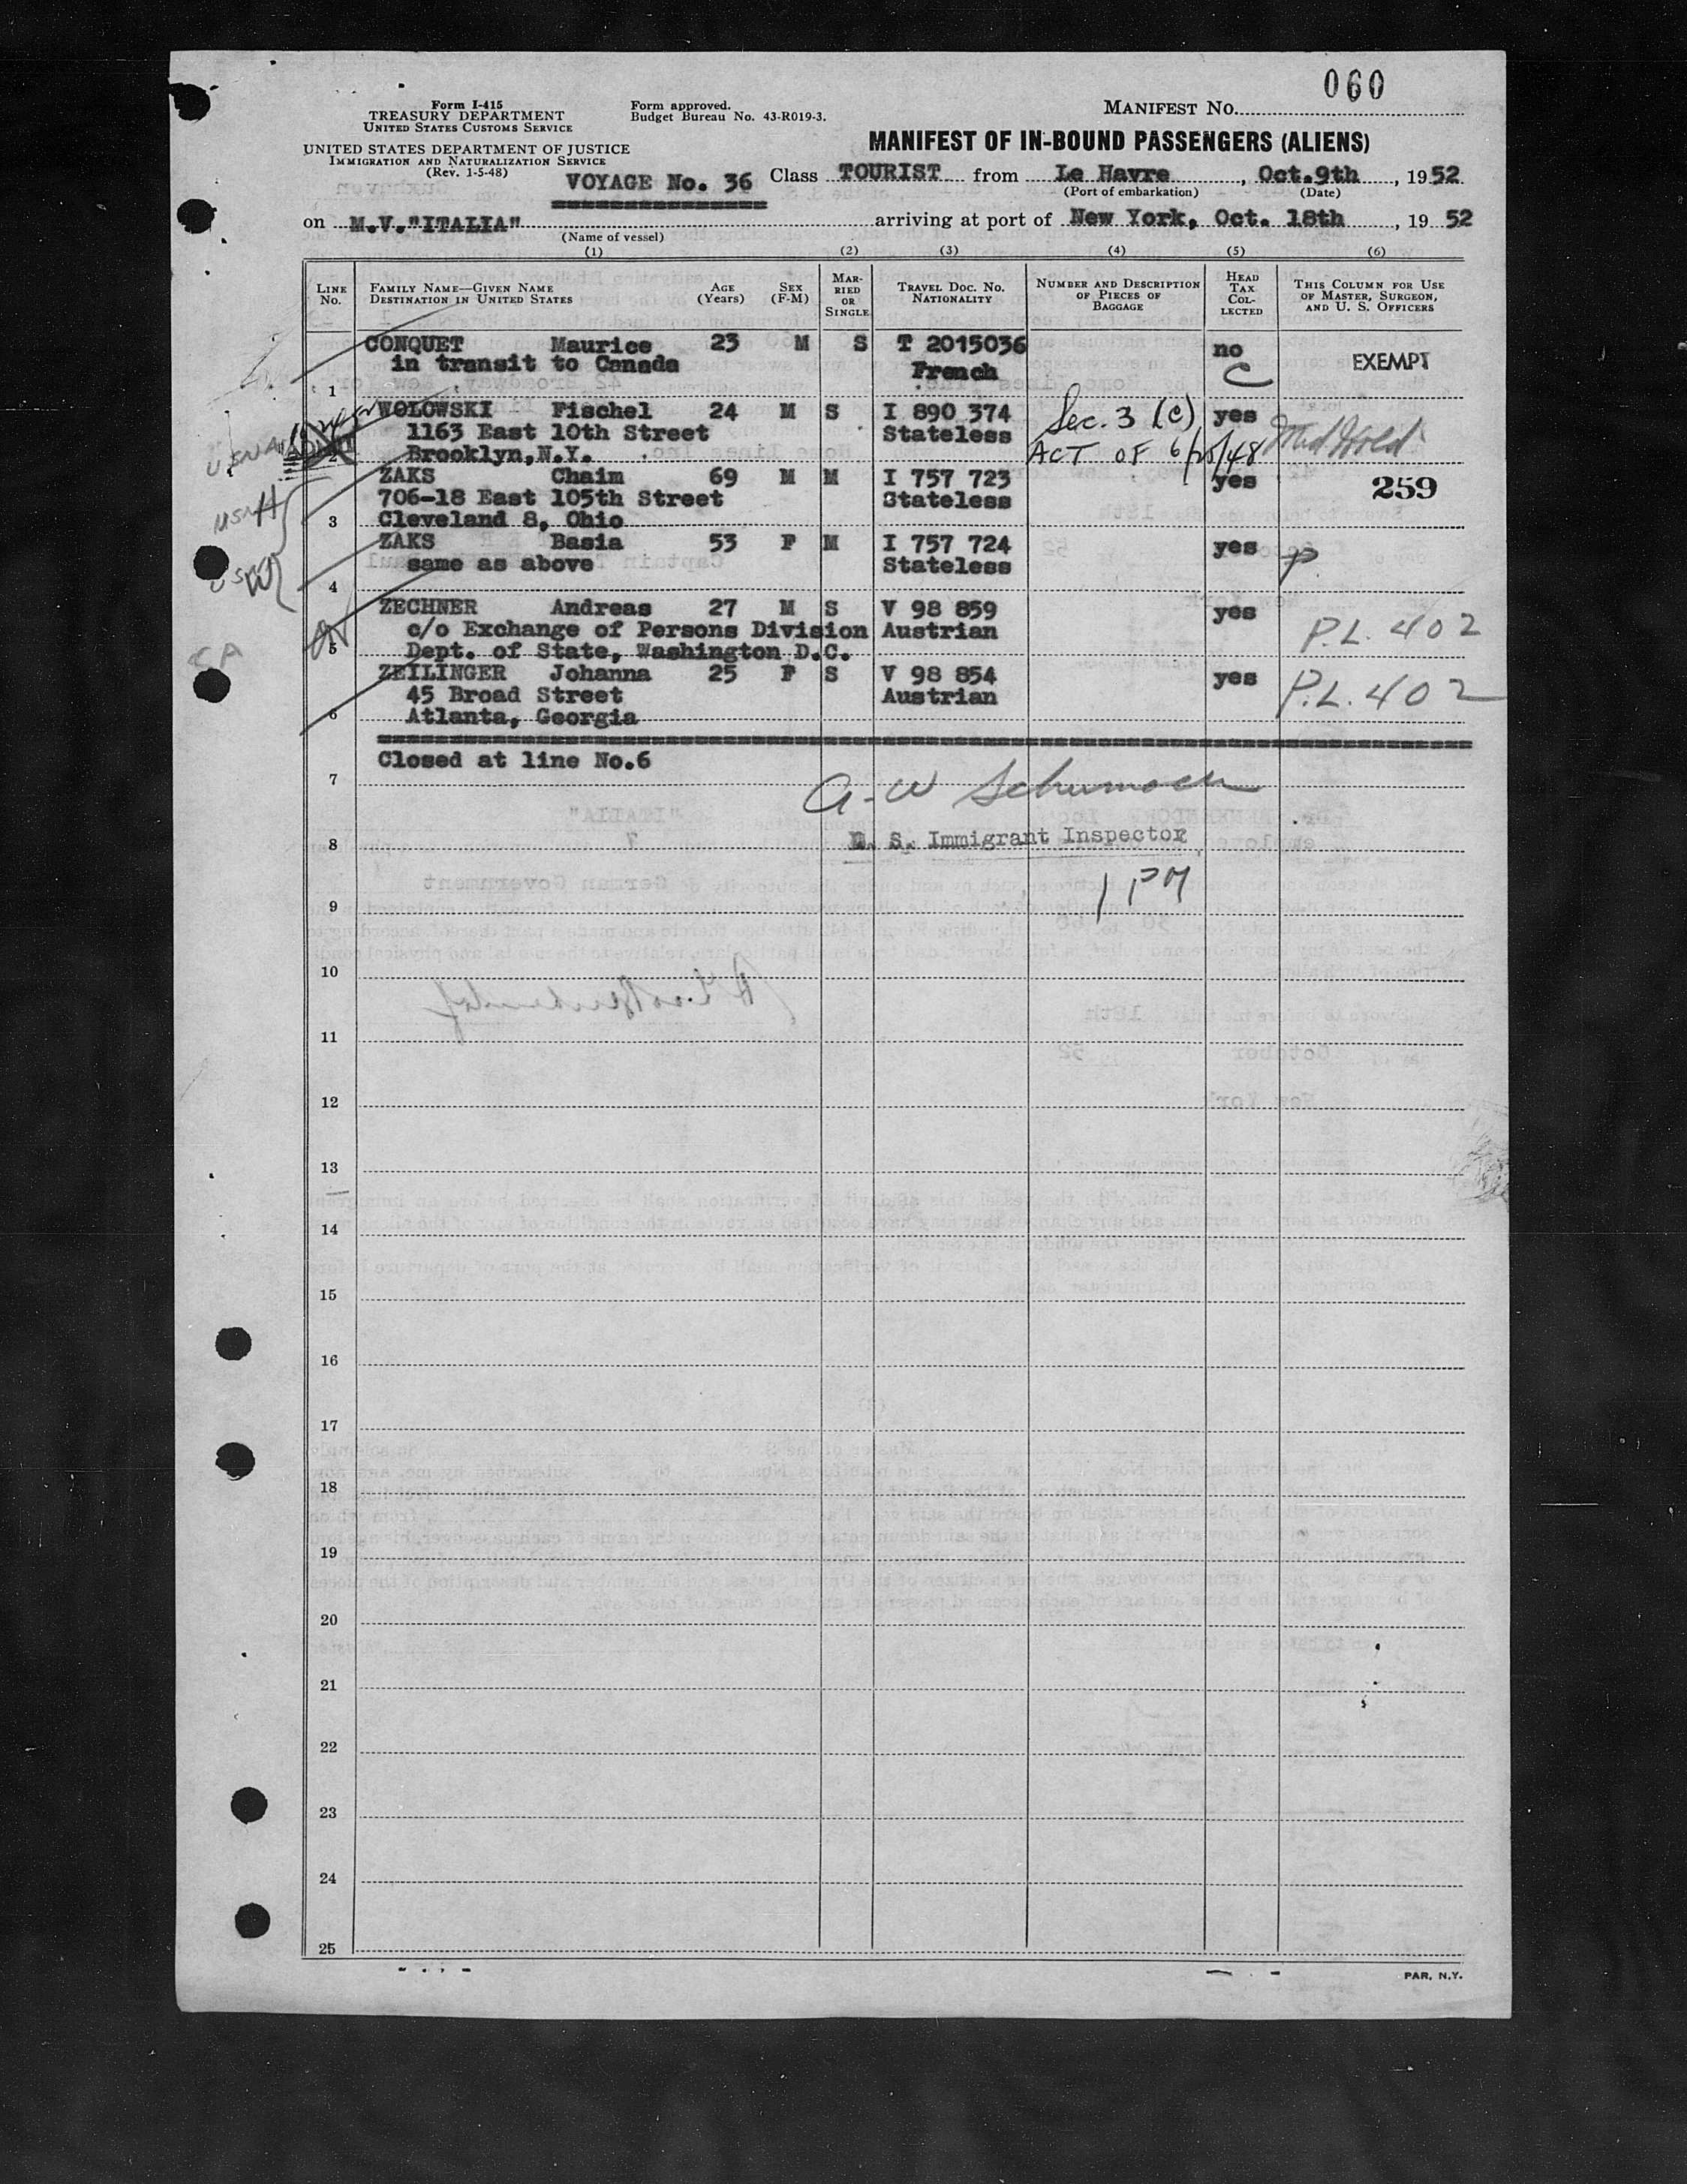 060
Form I-415
TREASURY DEPARTMENT
UNITED STATES CUSTOMS SERVICE
Form approved.
Budget Bureau No. 43-R019-3.
MANIFEST NO.
UNITED STATES DEPARTMENT OF JUSTICE
IMMIGRATION AND NATURALIZATION SERVICE
(Rev. 1-5-48)
MANIFEST OF IN-BOUND PASSENGERS (ALIENS)
VOYAGE No. 36 Class TOURIST from Le Havre, Oct.9th, 1952
(Port of embarkation) (Date)
on M.V."ITALIA" arriving at port of New York, Oct. 18th, 19 52
(Name of vessel)
(1) (2) (3) (4) (5) (6)
LINE NO. FAMILY NAME—GIVEN NAME DESTINATION IN UNITED STATES AGE (Years) SEX (F-M) MARRIED OR SINGLE TRAVEL DOC. NO. NATIONALITY NUMBER AND DESCRIPTION OF PIECES OF BAGGAGE HEAD TAX COLLECTED THIS COLUMN FOR USE OF MASTER, SURGEON, AND U. S. OFFICERS
CONQUET Maurice 23 M S T 2015036 no EXEMPT
in transit to Canada French C
1
WOLOWSKI Fischel 24 M S I 890 374 Sec. 3 (c) yes
1163 East 10th Street Stateless
2 Brooklyn,N.Y. ACT OF 6/25/48
ZAKS Chaim 69 M M I 757 723 yes 259
706-18 East 105th Street Stateless
3 Cleveland 8, Ohio
ZAKS Basia 53 F M I 757 724 yes P
same as above Stateless
4
ZECHNER Andreas 27 M S V 98 859 yes P.L. 402
c/o Exchange of Persons Division Austrian
5 Dept. of State, Washington D.C.
ZEILINGER Johanna 25 F S V 98 854 yes P.L. 402
45 Broad Street Austrian
6 Atlanta, Georgia
Closed at line No.6
7
A-W Schumach
8 U. S. Immigrant Inspector
1 PM
9
10
11
12
13
14
15
16
17
18
19
20
21
22
23
24
25
PAR, N.Y.